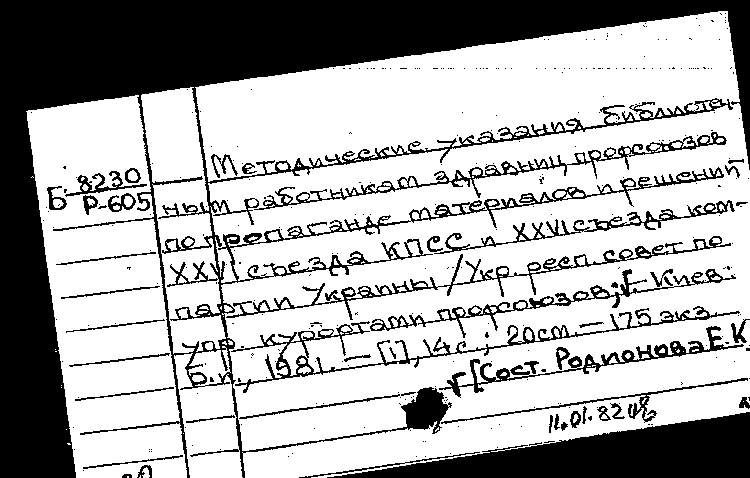 Б 8230
Р-605
Методические указания библиотеч-
ным работникам здравниц профсоюзов
по пропаганде материалов и решений
XXVI съезда КПСС и XXVI съезда ком-
партии Украины / Укр. респ. совет по
упр. курортами профсоюзов; √ - Киев:
Б.и., 1981. - [i], 14 с.; 20 см. - 175 экз.
√ [Сост. Родионова Е.К
11.01.82